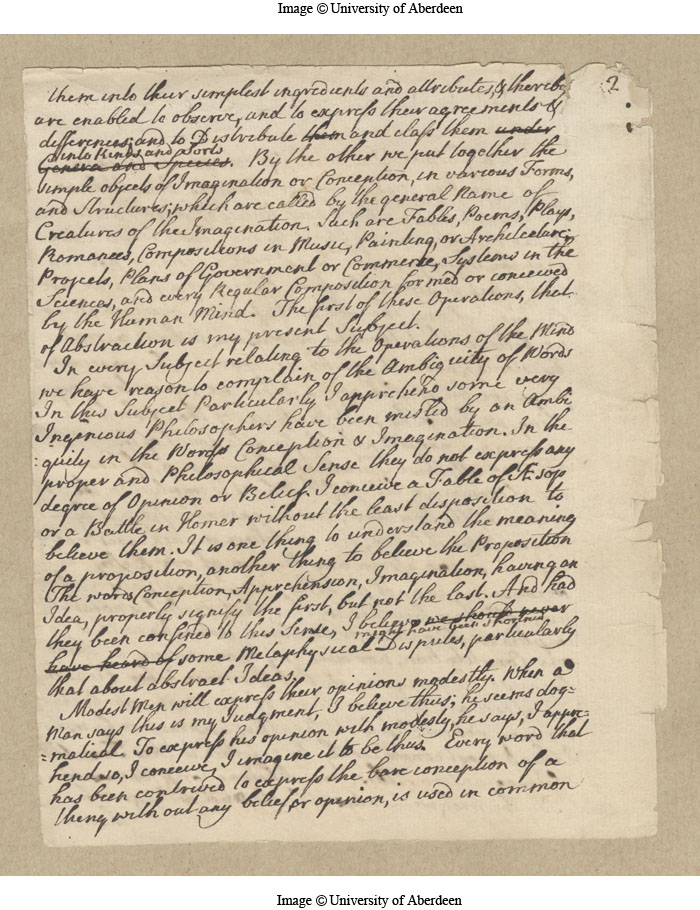 Image © University of Aberdeen
2
them into their simplest ingredients and attributes, & thereby
are enabled to observe, and to express their agreements &
differences; and to Distribute them and class them under
into Kinds and Sorts
Genera and Species. By the other we put together the
simple objects of Imagination or Conception, in various Forms,
and Structures; which are called by the general Name of
Creatures of the Imagination. Such are Fables, Poems, Plays,
Romances, Compositions in Music, Painting, or Architecture;
Projects, Plans of Government or Commerce, Systems in the
Sciences, and every Regular Composition formed or conceived
by the Human Mind. The first of these Operations, that
of Abstraction is my present Subject.
In every Subject relating to the Operations of the Mind
we have reason to complain of the Ambiguity of Words
In this Subject Particularly I apprehend some very
Ingenious Philosophers have been misled by an Ambi
:guity in the Words Conception & Imagination. In the
proper and Philosophical Sense they do not express any
degree of Opinion or Belief. I conceive a Fable of Æsop
or a Battle in Homer without the least disposition to
believe them. It is one thing to understand the meaning
of a proposition, another thing to believe the Proposition
The words Conception, Apprehension, Imagination, having an
Idea, properly signify the first, but not the last. And had
they been confined to this Sense, I believe we should never
might have been shortned
have heard of some Metaphysical Disputes, particularly
that about abstract Ideas.
Modest Men will express their opinions modestly. When a
Man says this is my Judgment, I believe thus; he seems dog-
=matical. To express his opinion with modesty, he says, I appre-
hend so, I conceive, I imagine it to be thus. Every word that
has been contrived to express the bare conception of a
thing without any belief or opinion, is used in common
Image © University of Aberdeen